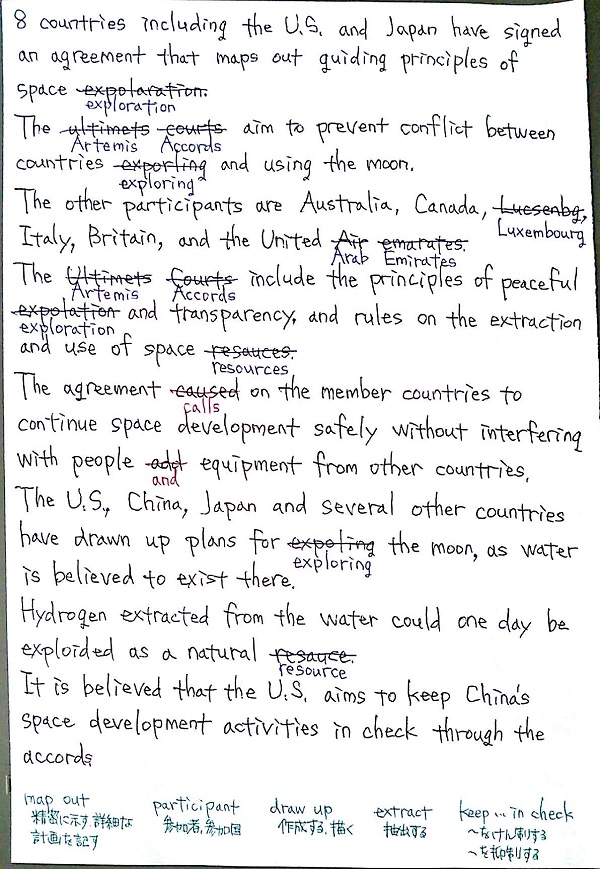 8 countries including the U.S. and Japan have signed
an agreement that maps out guiding principles of
space expolaration.
exploration
The ultimets courts aim to prevent conflict between
Artemis Accords
countries exporling and using the moon.
exploring
The other participants are Australia, Canada, Lucsenbg,
Luxembourg
Italy, Britain, and the United Air emarates.
Arab Emirates
The Ultimets Courts include the principles of peaceful
Artemis Accords
expolation and transparency, and rules on the extraction
exploration
and use of space resauces.
resources
The agreement caused on the member countries to
calls
continue space development safely without interfering
with people add equipment from other countries.
and
The U.S., China, Japan and several other countries
have drawn up plans for expoling the moon, as water
exploring
is believed to exist there.
Hydrogen extracted from the water could one day be
exploided as a natural resauce.
resource
It is believed that the U.S. aims to keep China's
space development activities in check through the
accords
map out participant draw up extract keep ... in check
精密に示す、詳細な 参加者、参加国 作成する、描く 抽出する 〜をけん制する
計画を記す 〜を抑制する